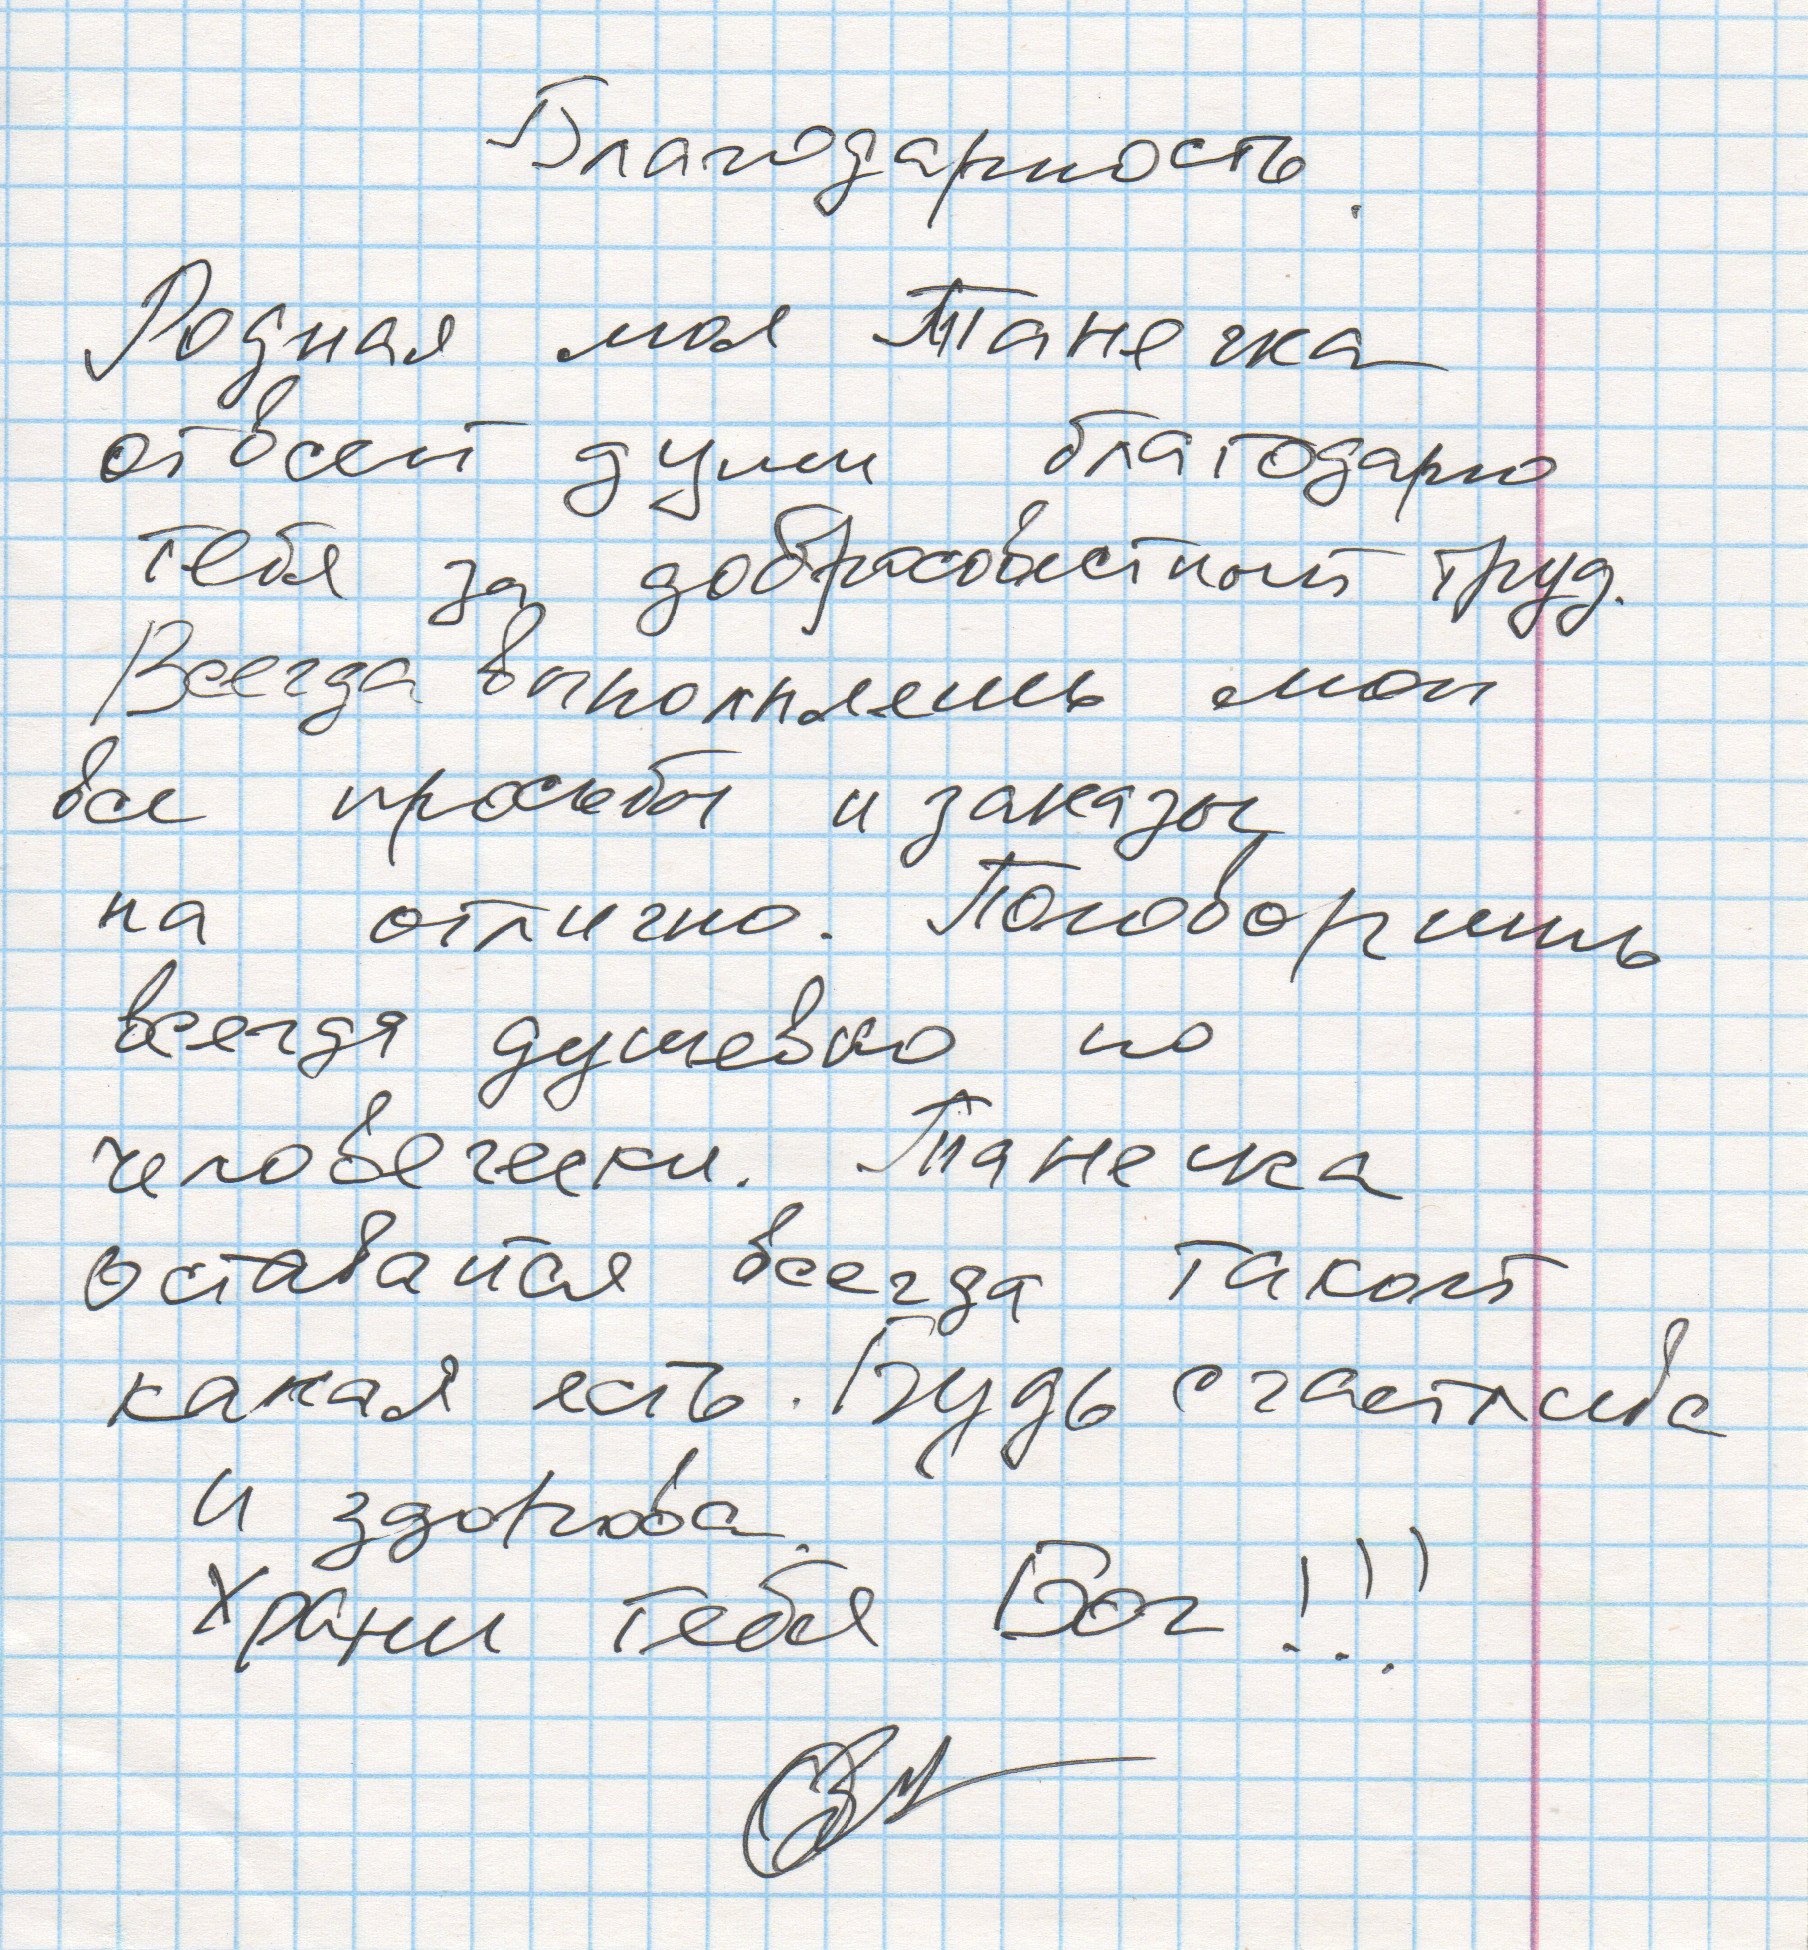 Благодарность.
Родная моя Танечка
отвсей души благодарю
тебя за добрасовестный труд.
Всегда выполняешь мои
все просьбы и заказы
на отлично. Поговоришь
всегда душевно по
человечески. Танечка
оставайся всегда такой
какая есть. Будь счастлива
и здорова.
Храни тебя Бог!!!